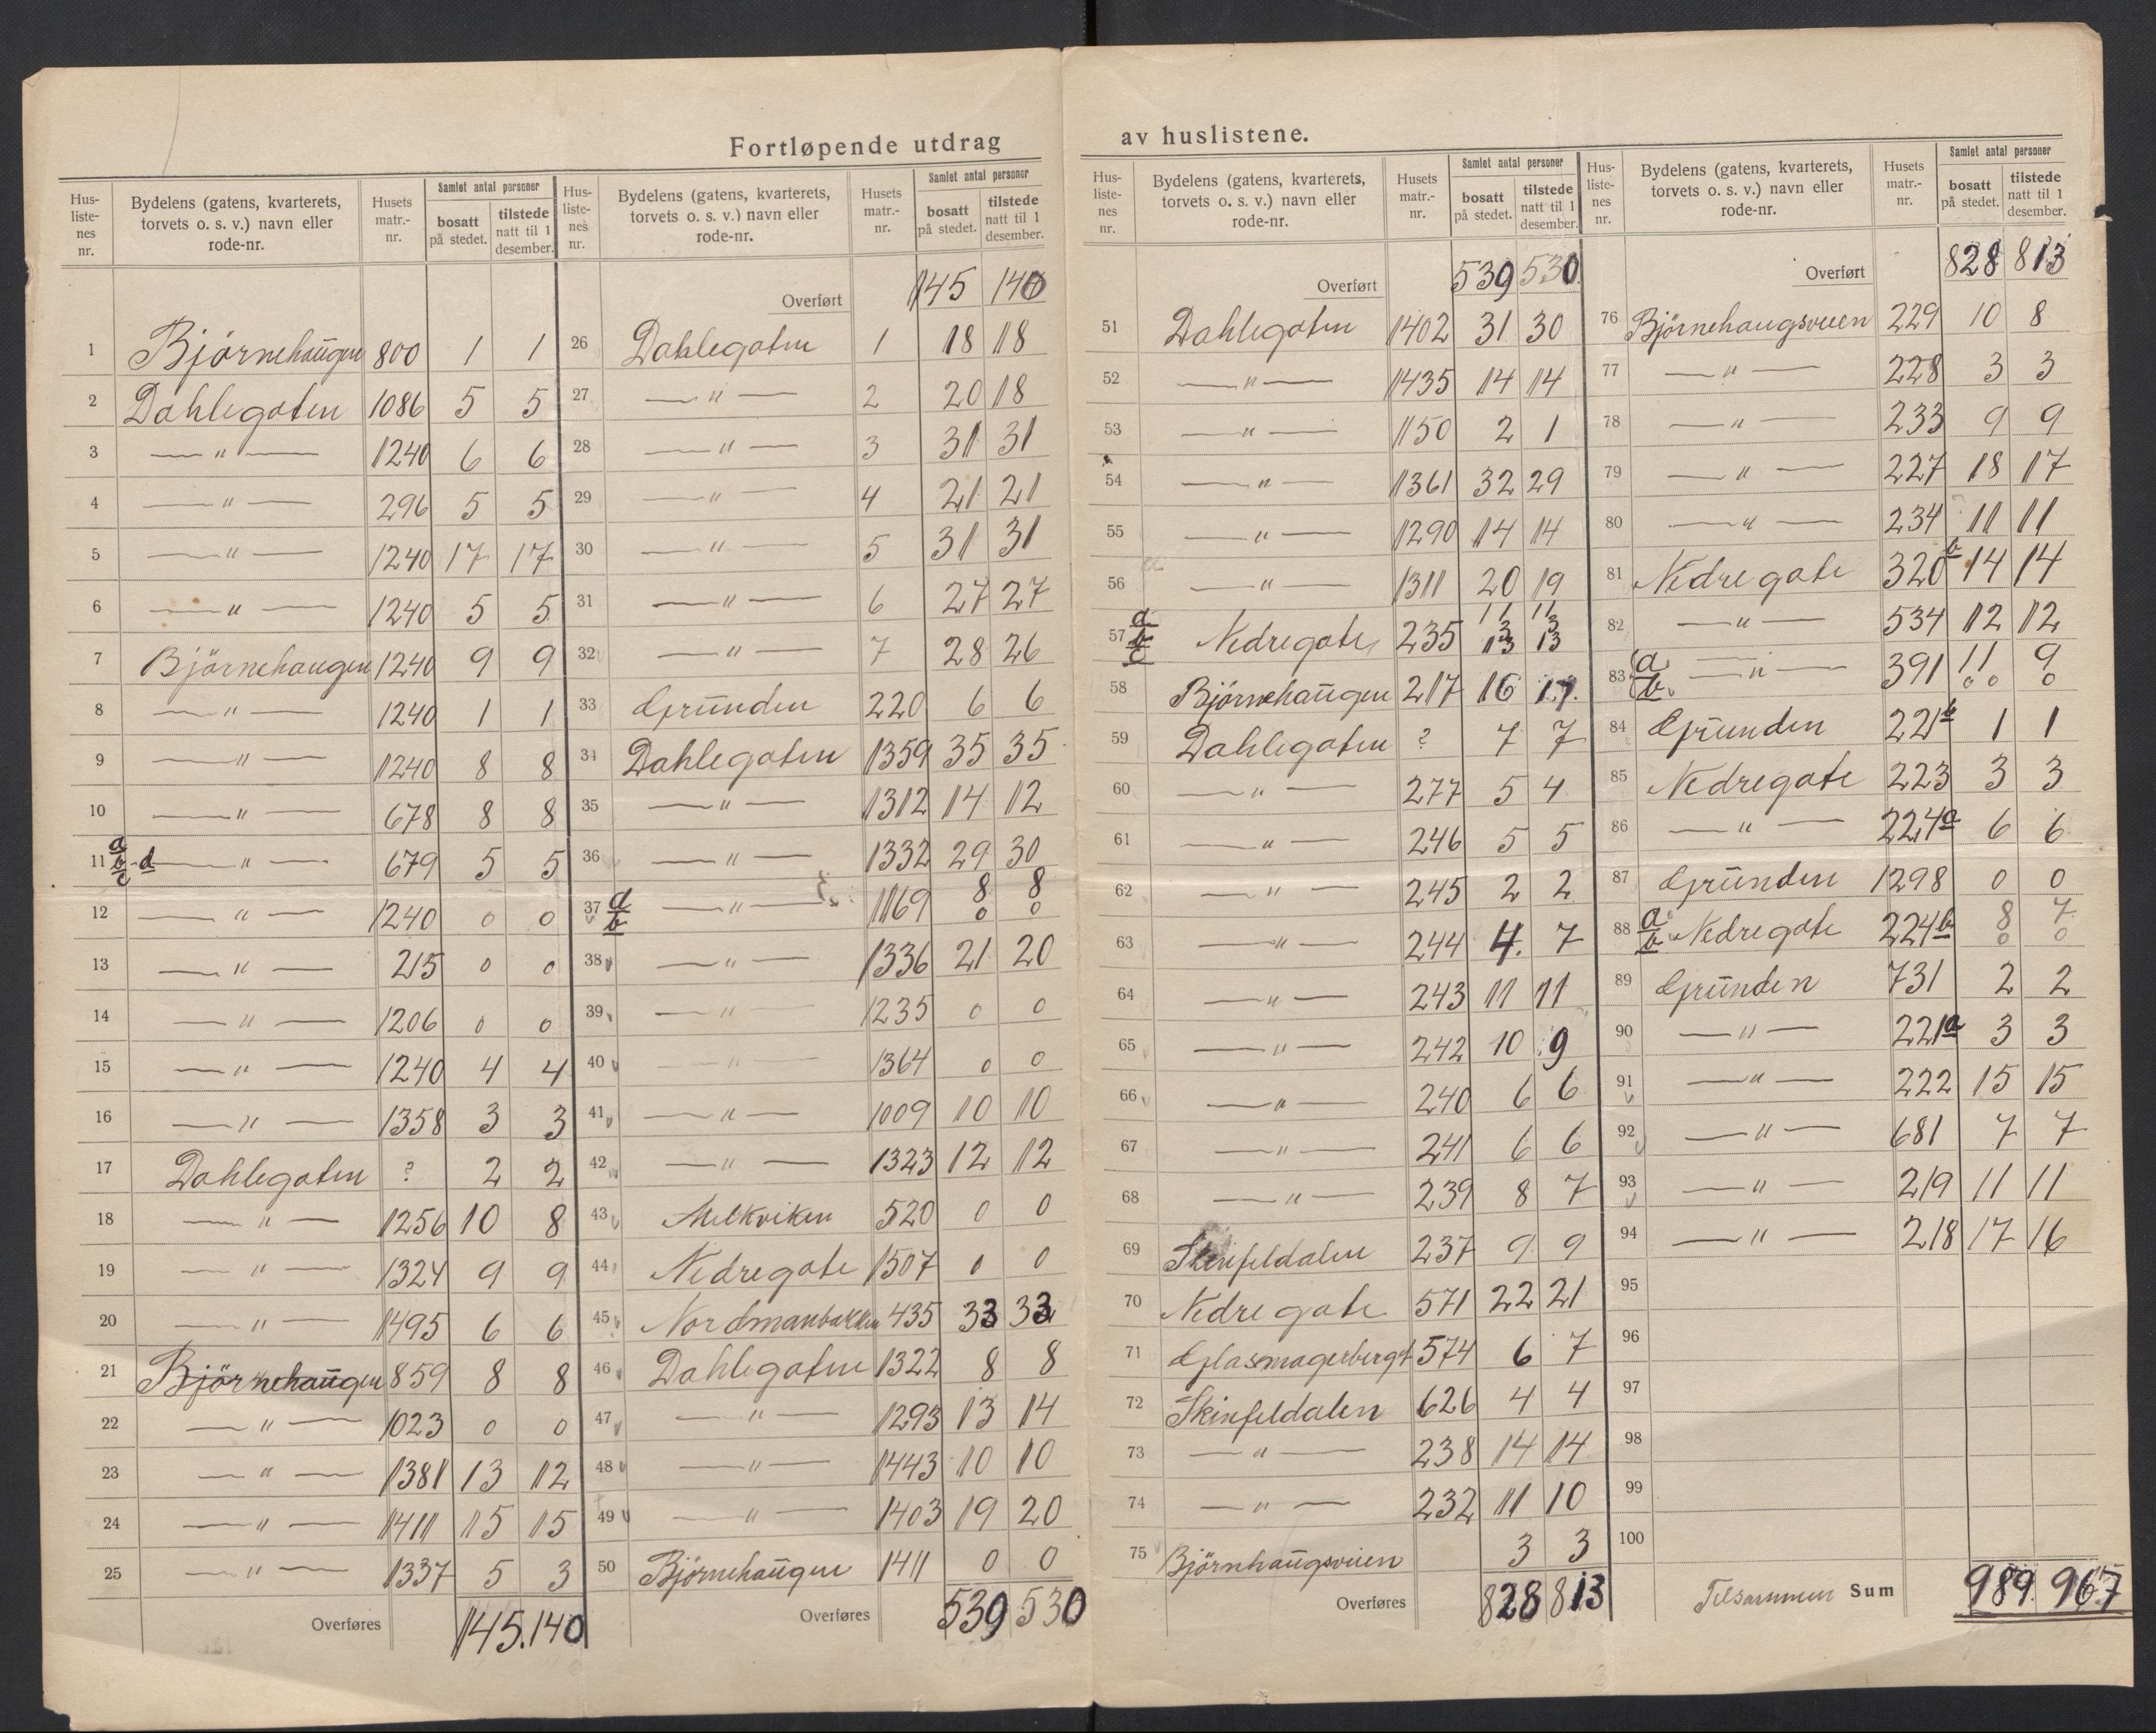 Fortløpende utdrag av huslistene.
Hus-listenes nr. | Bydelens (gatens, kvarterets, torvets o. s. v.) navn eller rode-nr. | Husets matr.-nr. | Samlet antal personer: bosatt på stedet. | tilstede natt til 1 desember.
1 Bjørnehaugen 800 1 1
2 Dahlegaten 1086 5 5
3 — " — 1240 6 6
4 — " — 296 5 5
5 — " — 1240 17 17
6 — " — 1240 5 5
7 Bjørnehaugen 1240 9 9
8 — " — 1240 1 1
9 — " — 1240 8 8
10 — " — 678 8 8
11 a b c - d — " — 679 5 5
12 — " — 1240 0 0
13 — " — 215 0 0
14 — " — 1206 0 0
15 — " — 1240 4 4
16 — " — 1358 3 3
17 Dahlegaten ? 2 2
18 — " — 1256 10 8
19 — " — 1324 9 9
20 — " — 1495 6 6
21 Bjørnehaugen 859 8 8
22 — " — 1023 0 0
23 — " — 1381 13 12
24 — " — 1411 15 15
25 — " — 1337 5 3
Overføres 145. 140
Hus-listenes nr. | Bydelens (gatens, kvarterets, torvets o. s. v.) navn eller rode-nr. | Husets matr.-nr. | Samlet antal personer: bosatt på stedet. | tilstede natt til 1 desember.
Overført 145 140
26 Dahlegaten 1 18 18
27 — " — 2 20 18
28 — " — 3 31 31
29 — " — 4 21 21
30 — " — 5 31 31
31 — " — 6 27 27
32 — " — 7 28 26
33 Grunden 220 6 6
34 Dahlegaten 1359 35 35
35 — " — 1312 14 12
36 — " — 1332 29 30
37 a b — " — 1169 8 8
0 0
38 — " — 1336 21 20
39 — " — 1235 0 0
40 — " — 1364 0 0
41 — " — 1009 10 10
42 — " — 1323 12 12
43 Melkviken 520 0 0
44 Nedregate 1507 0 0
45 Nordmanbakken 435 33 33
46 Dahlegaten 1322 8 8
47 — " — 1293 13 14
48 — " — 1443 10 10
49 — " — 1403 19 20
50 Bjørnehaugen 1411 0 0
Overføres 539 530
Hus-listenes nr. | Bydelens (gatens, kvarterets, torvets o. s. v.) navn eller rode-nr. | Husets matr.-nr. | Samlet antal personer: bosatt på stedet. | tilstede natt til 1 desember.
Overført 539 530
51 Dahlegaten 1402 31 30
52 — " — 1435 14 14
53 — " — 1150 2 1
54 — " — 1361 32 29
55 — " — 1290 14 14
56 — " — 1311 20 19
57 a b c Nedregate 235 13 13
58 Bjørnehaugen 217 16 17.
59 Dahlegaten ? 7 7
60 — " — 277 5 4
61 — " — 246 5 5
62 — " — 245 2 2
63 — " — 244 4. 7
64 — " — 243 11 11
65 — " — 242 10 9
66 — " — 240 6 6
67 — " — 241 6 6
68 — " — 239 8 7
69 Skinfeldalen 237 9 9
70 Nedregate 571 22 21
71 Glasmagerbergt 574 6 7
72 Skinfeldalen 626 4 4
73 — " — 238 14 14
74 — " — 232 11 10
75 Bjørnhaugsveien 3 3
Overføres 828 813
Hus-listenes nr. | Bydelens (gatens, kvarterets, torvets o. s. v.) navn eller rode-nr. | Husets matr.-nr. | Samlet antal personer: bosatt på stedet. | tilstede natt til 1 desember.
Overført 828 813
76 Bjørnehaugsveien 229 10 8
77 — " — 228 3 3
78 — " — 233 9 9
79 — " — 227 18 17
80 — " — 234 11 11
81 Nedregate 320 b 14 14
82 — " — 534 12 12
83 a b — " — 391 11 9
0 0
84 Grunden 221 b 1 1
85 Nedregate 223 3 3
86 — " — 224 a 6 6
87 Grunden 1298 0 0
88 a b Nedregate 224 b 8 7
0 0
89 Grunden 731 2 2
90 — " — 221 a 3 3
91 — " — 222 15 15
92 — " — 681 7 7
93 — " — 219 11 11
94 — " — 218 17 16
95
96
97
98
99
100
Tilsammen Sum 989. 967